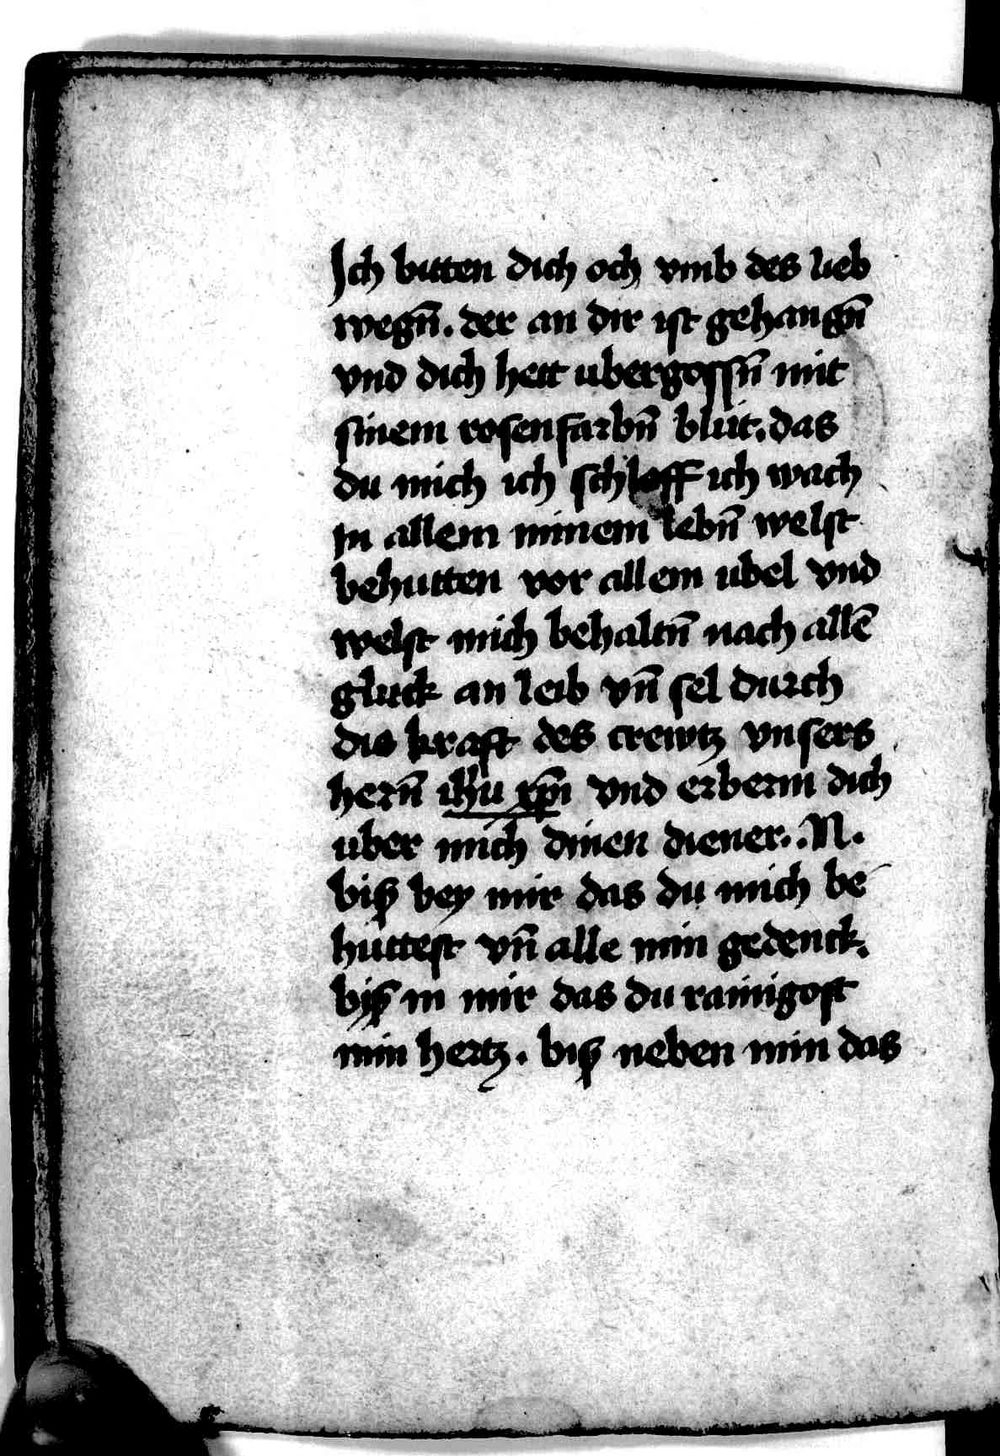 Ich bitten dich och vmb des lieb
wegn̄. der an dir ist gehangn̄
vnd dich hett ubergossn̄ mit
sinem rosenfarbn̄ blůt. das
du mich ich schloff ich wach
in allem minem lebn̄ welst
behutten vor allem ubel vnd
welst mich behaltn̄ nach allē
gluck an leib vn̄ sel durch
die kraft des crewtz vnsers
hern̄ ihu xp̄i vnd erberm dich
uber mich dinen diener. .N.
biß bey mir das du mich be
hüttest vn̄ alle min gedenck.
biß in mir das du rainigost
min hertz. biß neben min das